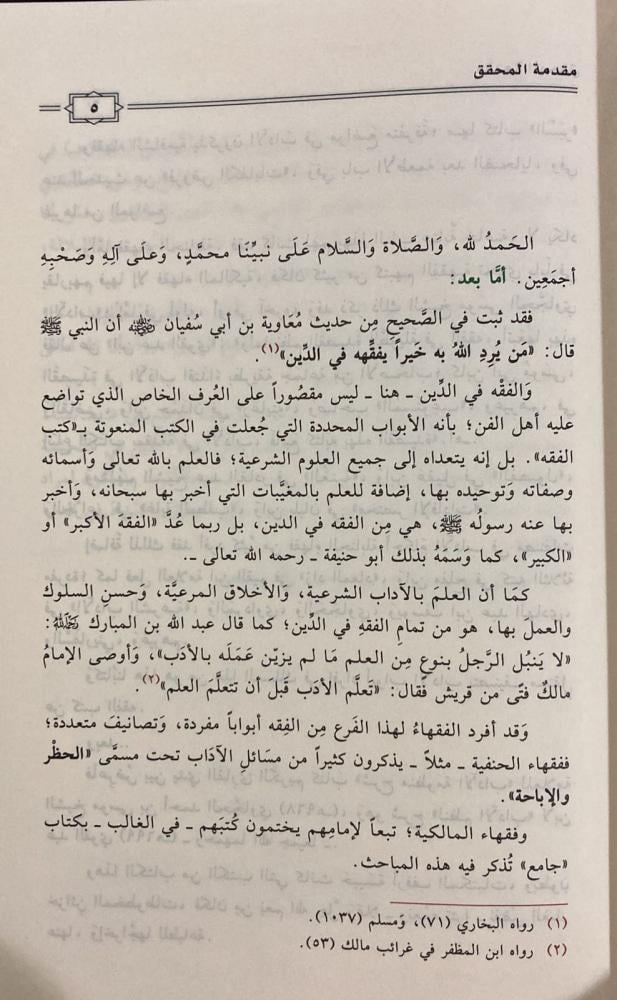 مقدمة المحقق
٥
الحَمدُ لله، وَالصَّلاة وَالسَّلام عَلَى نبيِّنَا محمَّدٍ، وَعلَى آلِهِ وَصَحْبِهِ
أجمَعِين. أمَّا بعد:
فقد ثبت في الصَّحيحِ مِن حديث مُعَاوية بن أبي سُفيان رضي الله عنه أن النبي ﷺ
قال: «مَن يُرِدِ اللهُ به خَيراً يفقِّهه في الدِّين»(١).
وَالفقْه في الدِّين ـ هنا ـ ليس مقصُوراً على العُرف الخاص الذي تواضع
عليه أهل الفن؛ بأنه الأبواب المحددة التي جُعلت في الكتب المنعوتة بـ«كتب
الفقه». بل إنه يتعداه إلى جميع العلوم الشرعية؛ فالعلم بالله تعالى وَأسمائه
وصفاته وَتوحيده بها، إضافة للعلم بالمغيَّبات التي أخبر بها سبحانه، وَأخبر
بها عنه رسولُه ﷺ، هي مِن الفقه في الدين، بل ربما عُدَّ «الفقهَ الأكبر» أو
«الكبير»، كما وَسَمَهُ بذلك أبو حنيفة ـ رحمه الله تعالى ـ.
كمَا أن العلمَ بالآداب الشرعية، وَالأخلاق المرعيَّة، وَحسنِ السلوك
والعملَ بها، هو من تمامِ الفقهِ في الدِّين؛ كما قال عبد الله بن المبارك رحمه الله:
«لا يَنبُل الرَّجلُ بنوعٍ مِن العلم مَا لم يزيّن عَمَلَه بالأدَب»، وَأوصى الإمامُ
مالكٌ فتًى من قريش فقال: «تَعلَّم الأدَب قَبلَ أن تتعلَّمَ العلم»(٢).
وَقد أفرد الفقهاءُ لهذا الفَرع مِن الفِقه أبواباً مفردة، وَتصانيفَ متعددة؛
ففقهاء الحنفية ـ مثلاً ـ يذكرون كثيراً من مسَائلِ الآدَاب تحت مسمَّى «الحظْر
والإباحة».
وفقهاء المالكية؛ تبعاً لإمامِهم يختمون كُتبَهم ـ في الغالب ـ بكتاب
«جامع» تُذكر فيه هذه المباحث.
(١) رواه البخاري (٧١)، وَمسلم (١٠٣٧).
(٢) رواه ابن المظفر في غرائب مالك (٥٣).